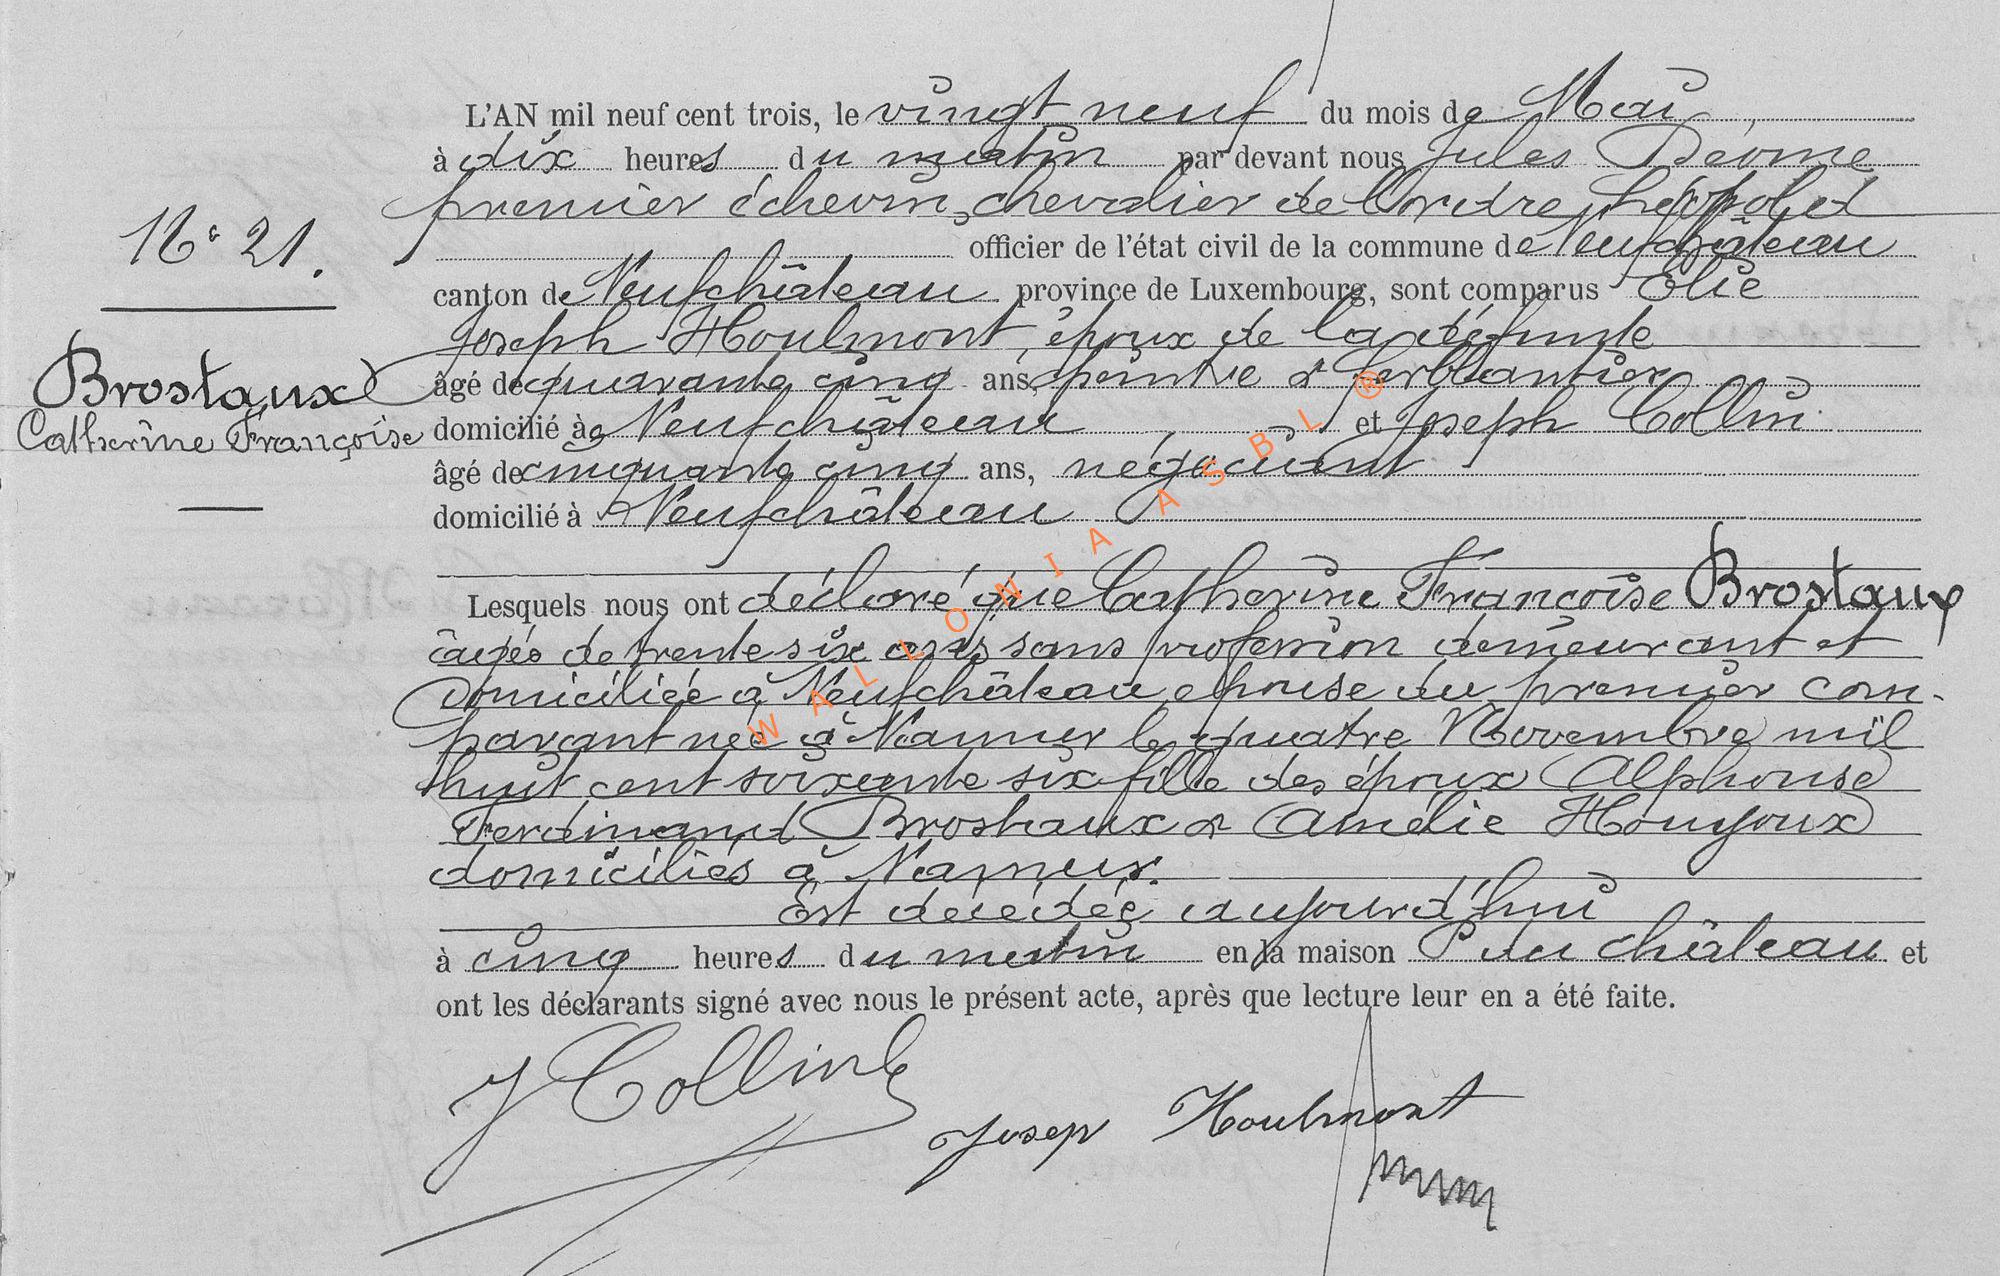 L'AN mil neuf cent trois, le vingt neuf du mois de Mai,
à dix heures du matin par devant nous Jules Deome
premier échevin, chevalier de l'ordre Léopold
N° 21.
officier de l'état civil de la commune de Neufchâteau
canton de Neufchâteau province de Luxembourg, sont comparus Elie
Joseph Houlmont, époux de la défunte
Brostaux
âgé de quarante cinq ans, peintre & ferblantier
Catherine Françoise
domicilié à Neufchâteau et Joseph Collin
âgé de cinquante cinq ans, négociant
domicilié à Neufchâteau
Lesquels nous ont déclaré que Catherine Françoise Brostaux
âgée de trente six ans sans profession demeurant et
domiciliée à Neufchâteau, épouse du premier com-
parant née à Namur le quatre Novembre mil
huit cent soixante six fille des époux Alphonse
Ferdinand Brostaux & Amélie Houyoux
domiciliés à Namur.
Est décédée aujourd'hui
à cinq heures du matin en la maison P du château et
ont les déclarants signé avec nous le présent acte, après que lecture leur en a été faite.
J Collin
Josep Houlmont
WALLONIA ASBL ®